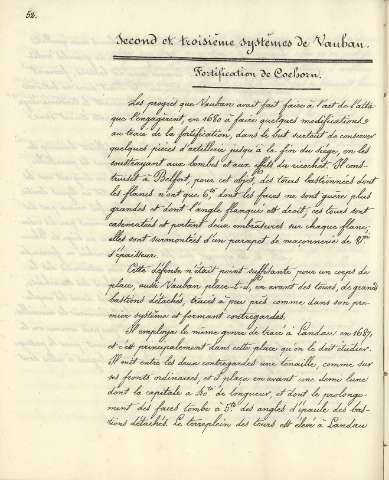 52.
Second et troisième systèmes de Vauban.
Fortification de Coehorn.
Les progrès que Vauban avait fait faire à l'art de l'atta
que l'engagèrent, en 1680 à faire quelques modifications
au tracé de la fortification, dans le but surtout de conserver
quelques pièces d'artillerie jusqu'à la fin du siège, en les
soustrayant aux bombes et aux effets du ricochet. Il cons-
truisit à Belfort, pour cet objet, des tours bastionnées dont
les flancs n'ont que 6m, dont les faces ne sont guère plus
grandes et dont l'angle flanqué est droit; ces tours sont
casematées et portent deux embrasures sur chaque flanc;
elles sont surmontées d'un parapet de maçonnerie de
d'épaisseur.
Cette défense n'était point suffisante pour un corps de
place, aussi Vauban plaça-t-il, en avant des tours, de grands
bastions détachés, tracés à peu près comme dans son pre-
mier système et formant contregardes.
Il employa le même genre de tracé à Landau en 1687,
et c'est principalement dans cette place qu'on le doit étudier.
Il mit entre les deux contregardes une tenaille, comme sur
ses fronts ordinaires, et il plaça en avant une demi lune
dont la capitale a 50m de longueur, et dont le prolonge-
ment des faces tombe à 5m des angles d'épaule des bas-
tions détachés. Le terreplein des tours est élevé à Landau